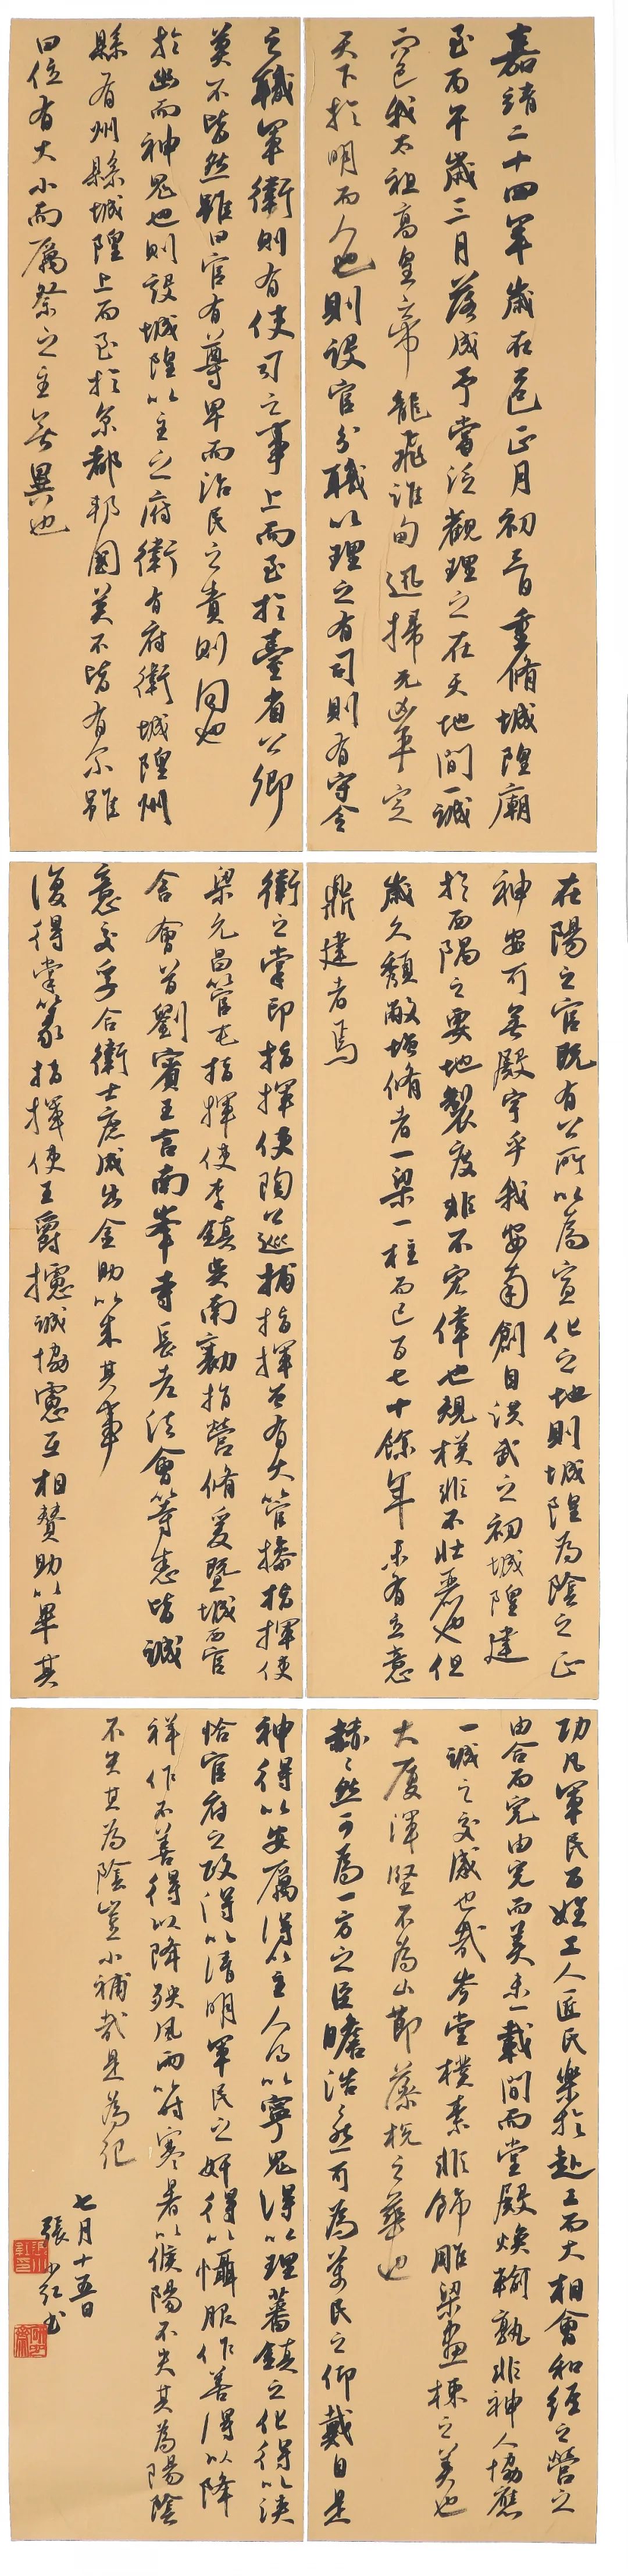 嘉靖二十四年歲在乙巳正月初三日重脩城隍廟
至丙午歲三月落成予當泛觀理之在天地間一誠
而已我太祖高皇帝龍飛淮甸迅掃元凶平定
天下於明而人也則設官分職以理之有司則有守令
之職軍衛則有使司之事上而至於臺省公卿
莫不皆然雖曰官有尊卑而治民之責則同也
於幽而神鬼也則設城隍以主之府衛有府衛城隍州
縣有州縣城隍上而至於京都邦國莫不皆有尔雖
曰位有大小而厲祭之主無異也
在陽之官既有公所以為宣化之地則城隍為陰之正
神安可無殿宇乎我安南創自洪武之初城隍建
於西隅之要地製度非不宏偉也規模非不壯麗也但
歲久頹敝增脩者一梁一柱而已百七十餘年未有立意
鼎建者焉
衛之掌印指揮使陶公巡捕指揮公有大管操指揮使
梁元昌管屯指揮使李鎮吳南勸指營脩爰暨城西官
舍會首劉賓王言南峯寺長老法會等悉皆誠
意交孚合衛士庶咸出金助以來其事
復得掌篆指揮使王爵攄誠協慮互相贊助以畢其
功凡軍民百姓工人匠民樂於赴工而大相會和經之營之
由合而完由完而美未一載間而堂殿煥輪孰非神人協應
一誠之交感也哉岑堂樸素非飾雕梁畫棟之美也
大廈渾堅不為山節藻梲之華也
赫赫然可為一方之臣瞻浩浩然可為萬民之仰戴自是
神得以安厲得以主人得以寧鬼得以理蕃鎮之化得以浹
恰官府之政得以清明軍民之奸得以懾服作善得以降
祥作不善得以降殃風雨以時寒暑以候陽不失其為陽陰
不失其為陰豈小補哉是為記
七月十五日
張少紅書